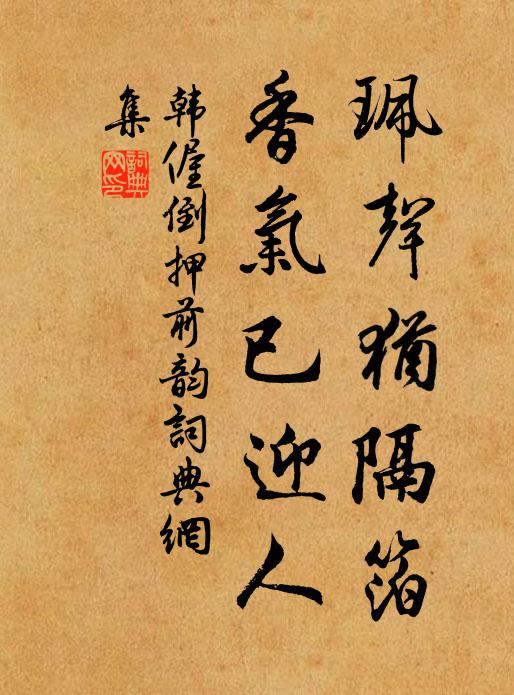 珮聲猶隔箔
香氣已迎人
韩偓倒押前韵詞典網
集
詞典
网印